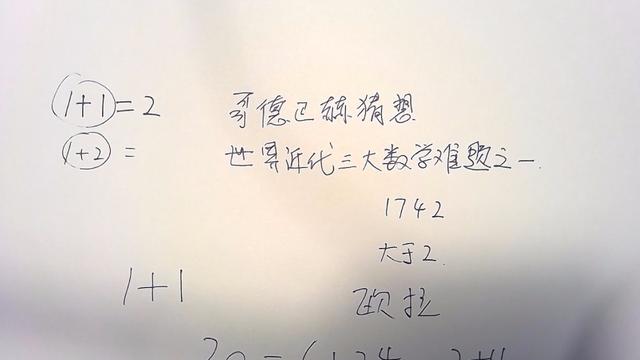 1+1=2 哥德巴赫猜想
1+2= 世界近代三大数学难题之一.
1742
大于2.
1+1 欧拉